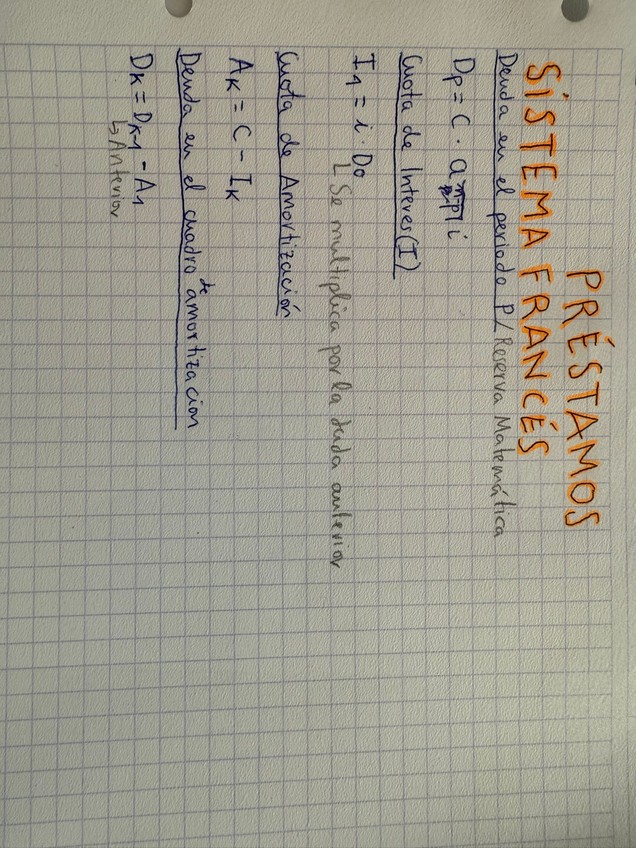 PRÉSTAMOS
SÍSTEMA FRANCÉS
Deuda en el periodo P/Reserva Matemática
Dp = C · a n-p i
Cuota de Interes (I)
I1 = i · D0
Se multiplica por la duda anterior
Cuota de Amortización
AK = C - IK
Deuda en el cuadro de amortizacion
DK = DK-1 - A1
↳ Anterior